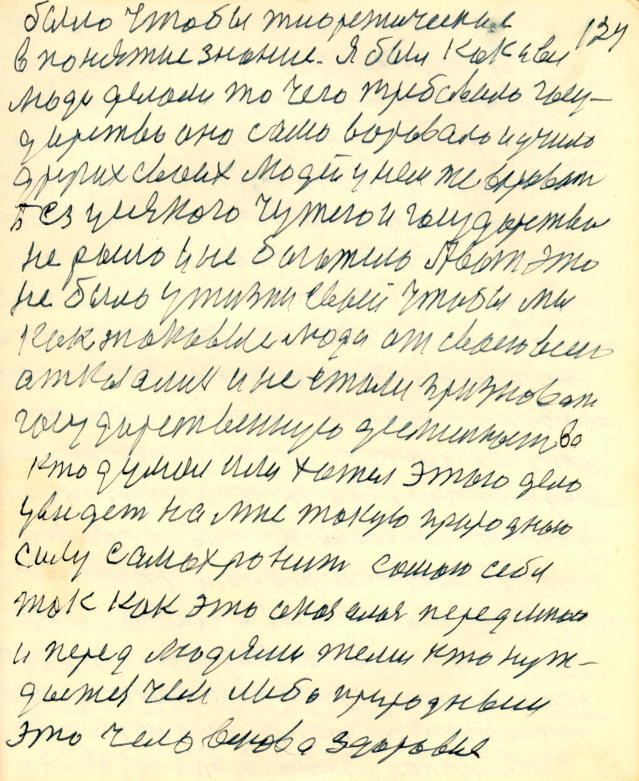 было чтобы тиоретические 124
в понятие знание. Я были как и все
люди делали то чего требовало госу-
дарство оно само воровало и учило
других своих людей у нем же воровать
Без
чужого и государство
не
и не богатело А вот это
не было у жизни своей чтобы мы
как таковые люди от своего всего
отказались и не стали признавать
государственную
кто думал или хотел этого дело
увидет на мне такую природною
силу самохронит самою себя
так как это оказалая передмною
и перед людями теми кто нуж-
дается чем либо природным
это человекова здоровие